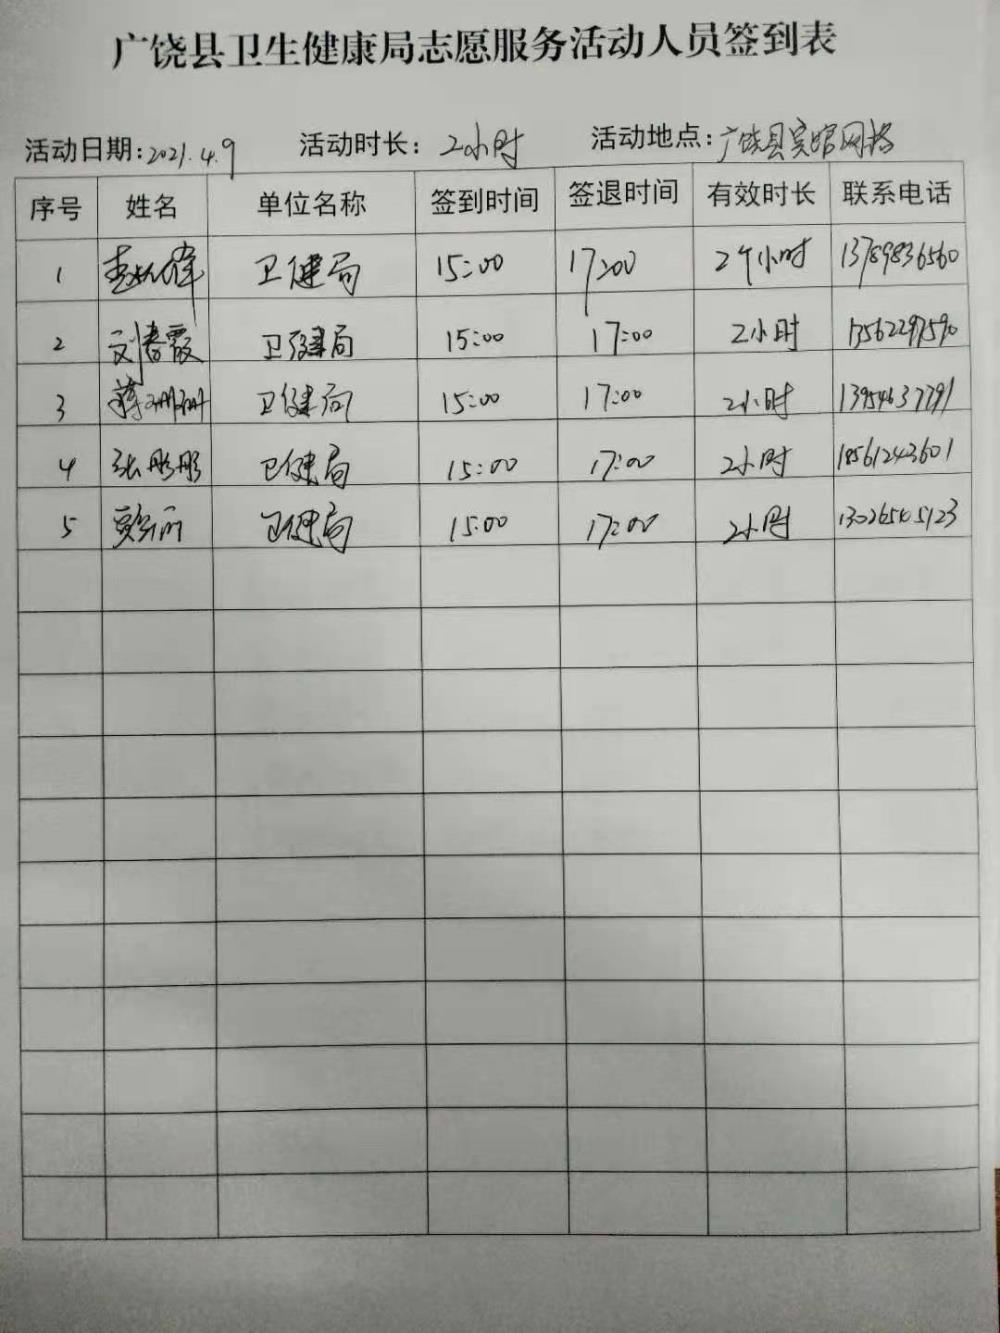 广饶县卫生健康局志愿服务活动人员签到表
活动日期:2021.4.9 活动时长:2小时 活动地点:广饶县宾馆网格
序号 姓名 单位名称 签到时间 签退时间 有效时长 联系电话
1 卫健局 15:00 17:00 2个小时 13789836560
2 刘春霞 卫健局 15:00 17:00 2小时 13562297590
3 蒋珊珊 卫健局 15:00 17:00 2小时 13954637791
4 张彤彤 卫健局 15:00 17:00 2小时 18561243601
5 卫健局 15:00 17:00 2小时 13026505123